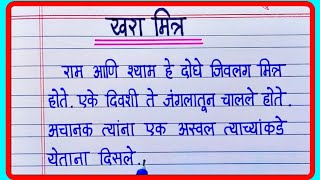 खरा मित्र
राम आणि श्याम हे दोघे जिवलग मित्र
होते. एके दिवशी ते जंगलातून चालले होते.
अचानक त्यांना एक अस्वल त्याच्यांकडे
येताना दिसले..